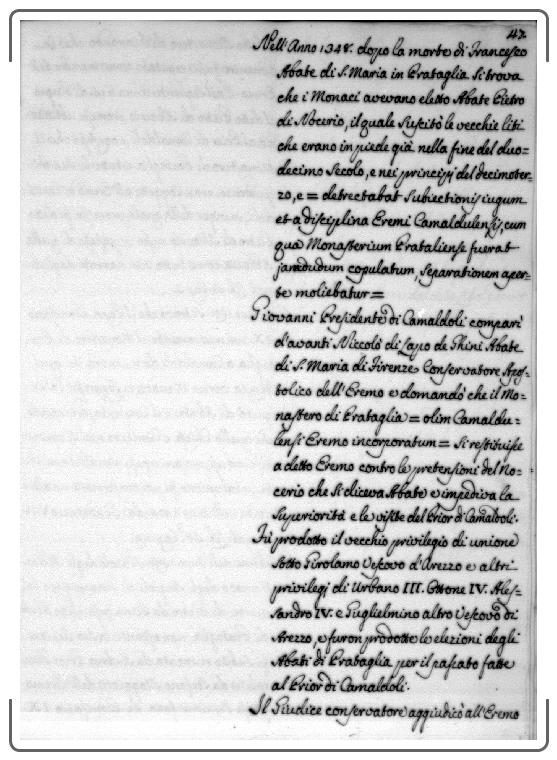 47.
Nell'Anno 1348. dopo la morte di Francesco
Abate di S. Maria in Prataglia si trova
che i Monaci avevano eletto Abate Pietro
di Nocerio, il quale suscitò le vecchie liti
che erano in piede già nella fine del duo=
decimo Secolo, e nei principj del decimoter=
zo, e = detrectabat Subiectionis iugum
et a disciplina Eremi Camaldulensis, cum
qua Monasterium Prataliense fuerat
jamdudum copulatum, separationem aper=
te moliebatur =
Giovanni Presidente di Camaldoli comparì
d'avanti Niccolò di Lapo de Ghini Abate
di S. Maria di Firenze Conservatore Apos=
tolico dell'Eremo e domandò che il Mo=
nastero di Prataglia = olim Camaldu=
lensi Eremo incorporatum = si restituisse
a detto Eremo contro le pretensioni del No=
cerio che si diceva Abate e impediva la
Superiorità e le visite del Prior di Camaldoli.
Fù prodotto il vecchio privilegio di unione
sotto Girolamo Vescovo d'Arezzo e altri
privilegj di Urbano III. Ottone IV. Ales=
sandro IV. e Guglielmino altro Vescovo di
Arezzo, e furon prodotte le elezioni degli
Abati di Prataglia per il passato fatte
al Prior di Camaldoli.
Il Giudice conservatore aggiudicò all'Eremo